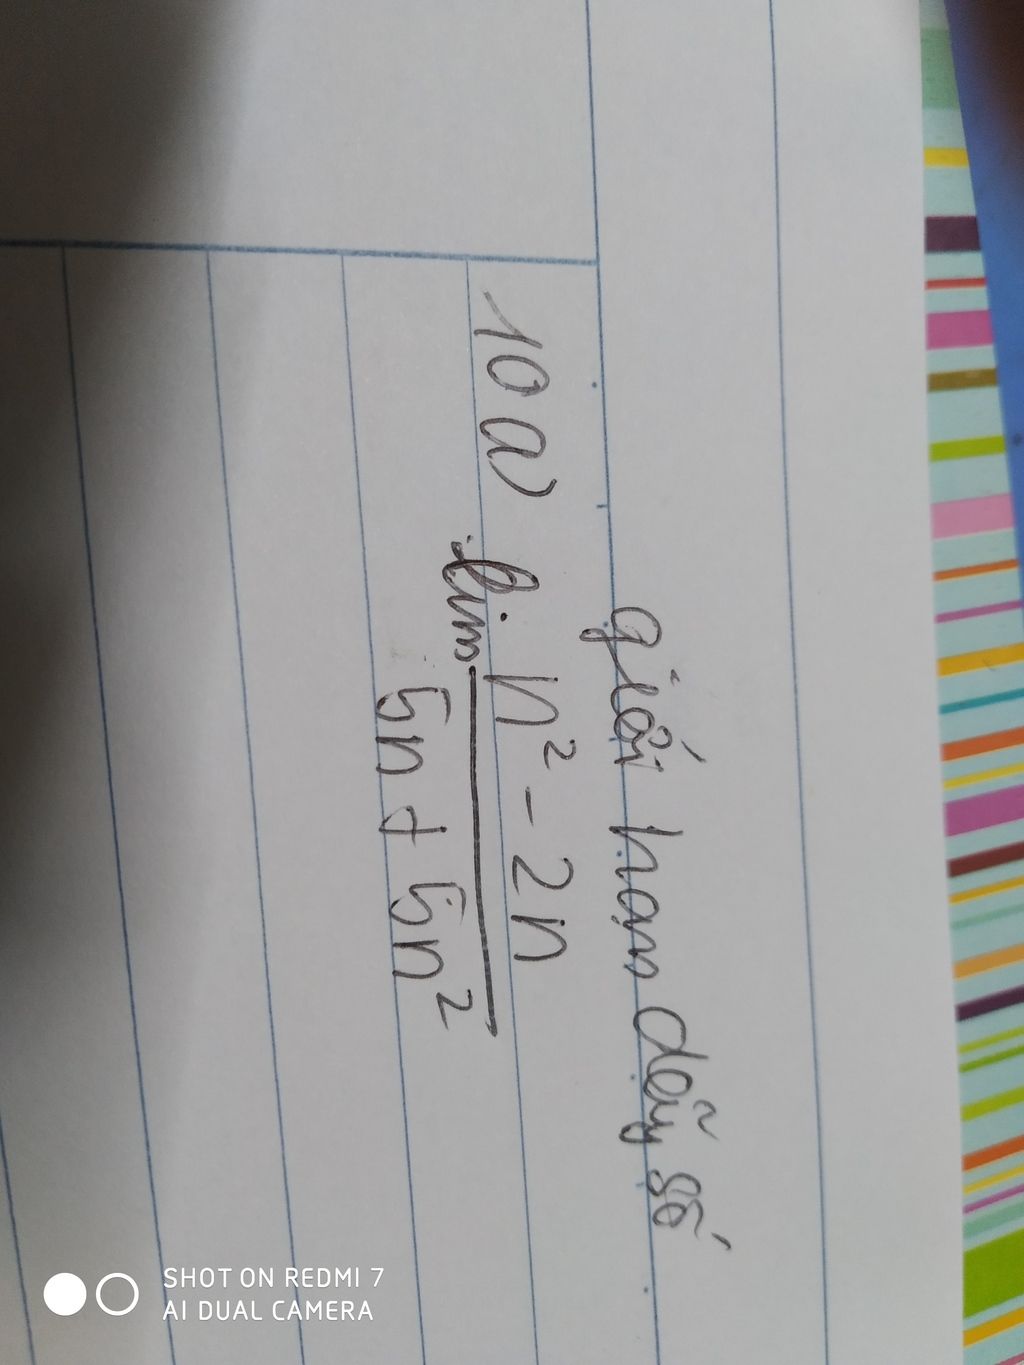 giới hạn dãy số
10 a) lim n² - 2n
5n + 5n²
SHOT ON REDMI 7
AI DUAL CAMERA